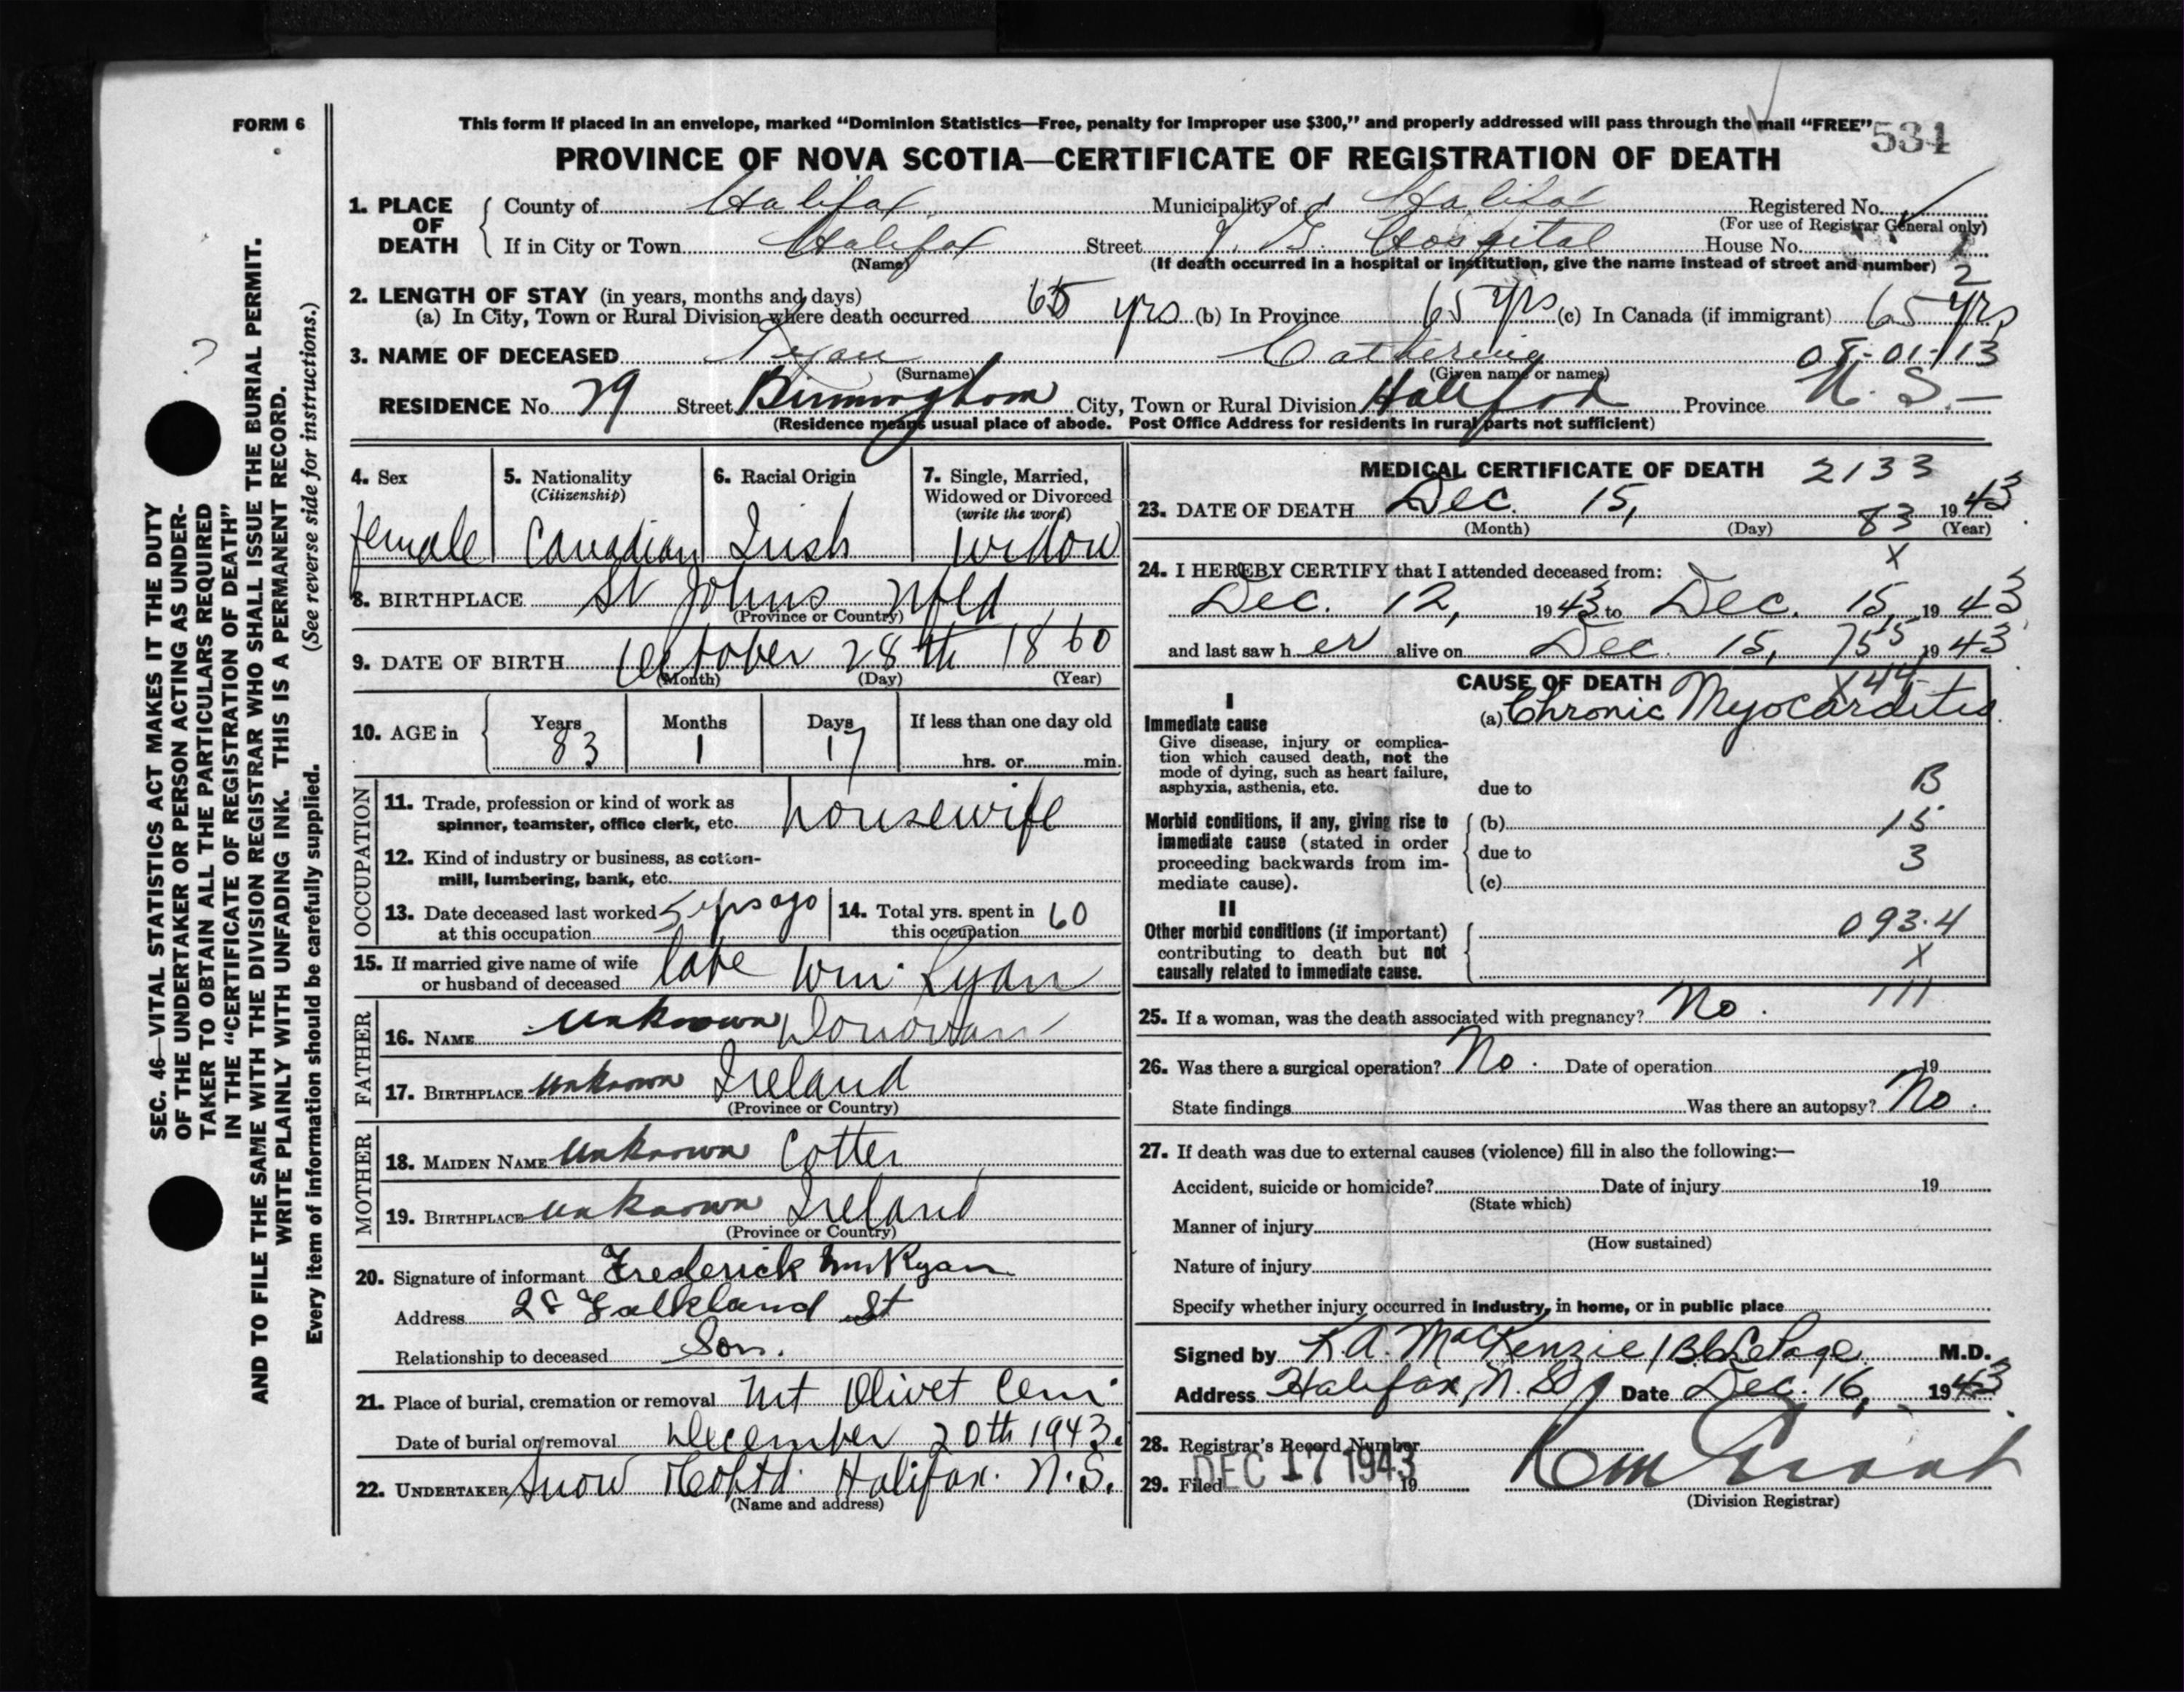 FORM 6
This form if placed in an envelope, marked “Dominion Statistics—Free, penalty for improper use $300,” and properly addressed will pass through the mail “FREE”
534
PROVINCE OF NOVA SCOTIA—CERTIFICATE OF REGISTRATION OF DEATH
1. PLACE OF DEATH
County of Halifax Municipality of Halifax Registered No.
(For use of Registrar General only)
If in City or Town Halifax Street Hospital House No.
(Name) (If death occurred in a hospital or institution, give the name instead of street and number)
2
2. LENGTH OF STAY (in years, months and days)
(a) In City, Town or Rural Division where death occurred 65 yrs (b) In Province 65 yrs (c) In Canada (if immigrant) 65 yrs
3. NAME OF DECEASED Ryan Catherine 08-01-13
(Surname) (Given name or names)
RESIDENCE No. 29 Street Birmingham City, Town or Rural Division Halifax Province N. S.
(Residence means usual place of abode. Post Office Address for residents in rural parts not sufficient)
4. Sex
female
5. Nationality
(Citizenship)
Canadian
6. Racial Origin
Irish
7. Single, Married,
Widowed or Divorced
(write the word)
Widow
8. BIRTHPLACE St Johns Nfld
(Province or Country)
9. DATE OF BIRTH October 28th 1860
(Month) (Day) (Year)
10. AGE in
Years Months Days If less than one day old
83 1 17 hrs. or min.
OCCUPATION
11. Trade, profession or kind of work as
spinner, teamster, office clerk, etc. housewife
12. Kind of industry or business, as cotton-
mill, lumbering, bank, etc.
13. Date deceased last worked
at this occupation 5 yrs ago
14. Total yrs. spent in
this occupation 60
15. If married give name of wife
or husband of deceased late Wm. Ryan
FATHER
16. NAME unknown Donovan
17. BIRTHPLACE unknown Ireland
(Province or Country)
MOTHER
18. MAIDEN NAME unknown Cotter
19. BIRTHPLACE unknown Ireland
(Province or Country)
20. Signature of informant Frederick Wm Ryan
Address 28 Falkland St
Relationship to deceased Son.
21. Place of burial, cremation or removal Mt Olivet Cem.
Date of burial or removal December 20th 1943.
22. UNDERTAKER Snow & Co Ltd. Halifax. N.S.
(Name and address)
MEDICAL CERTIFICATE OF DEATH 2133
23. DATE OF DEATH Dec. 15, 1943
(Month) (Day) 83 (Year)
X
24. I HEREBY CERTIFY that I attended deceased from:
Dec. 12, 1943 to Dec. 15, 1943
and last saw her alive on Dec. 15, 755 1943
CAUSE OF DEATH X44
I
Immediate cause
Give disease, injury or complica-
tion which caused death, not the
mode of dying, such as heart failure,
asphyxia, asthenia, etc.
(a) Chronic Myocarditis
due to B
Morbid conditions, if any, giving rise to
immediate cause (stated in order
proceeding backwards from im-
mediate cause).
(b) 15
due to 3
(c)
II
Other morbid conditions (if important)
contributing to death but not
causally related to immediate cause.
093.4
X
111
25. If a woman, was the death associated with pregnancy? No.
26. Was there a surgical operation? No. Date of operation 19
State findings Was there an autopsy? No.
27. If death was due to external causes (violence) fill in also the following:—
Accident, suicide or homicide? Date of injury 19
(State which)
Manner of injury
(How sustained)
Nature of injury
Specify whether injury occurred in industry, in home, or in public place
Signed by K A. MacKenzie / LePage M.D.
Address Halifax, N. S. Date Dec. 16, 1943
28. Registrar's Record Number
29. Filed DEC 17 1943 19
(Division Registrar)
SEC. 46—VITAL STATISTICS ACT MAKES IT THE DUTY
OF THE UNDERTAKER OR PERSON ACTING AS UNDER-
TAKER TO OBTAIN ALL THE PARTICULARS REQUIRED
IN THE “CERTIFICATE OF REGISTRATION OF DEATH”
AND TO FILE THE SAME WITH THE DIVISION REGISTRAR WHO SHALL ISSUE THE BURIAL PERMIT.
WRITE PLAINLY WITH UNFADING INK. THIS IS A PERMANENT RECORD.
Every item of information should be carefully supplied. (See reverse side for instructions.)